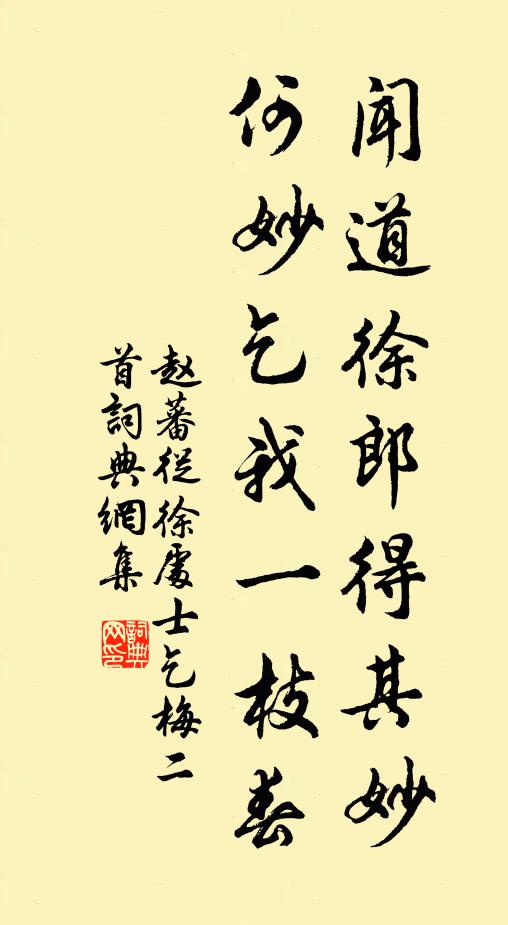 闻道徐郎得其妙
何妙乞我一枝春
赵蕃從徐處士乞梅二
首詞典網集
詞典
网印